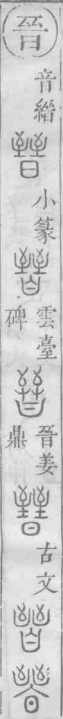 晉 音縉 晉 小篆 晉 雲臺碑 晉 晉姜鼎 晉 古文 晉 晉